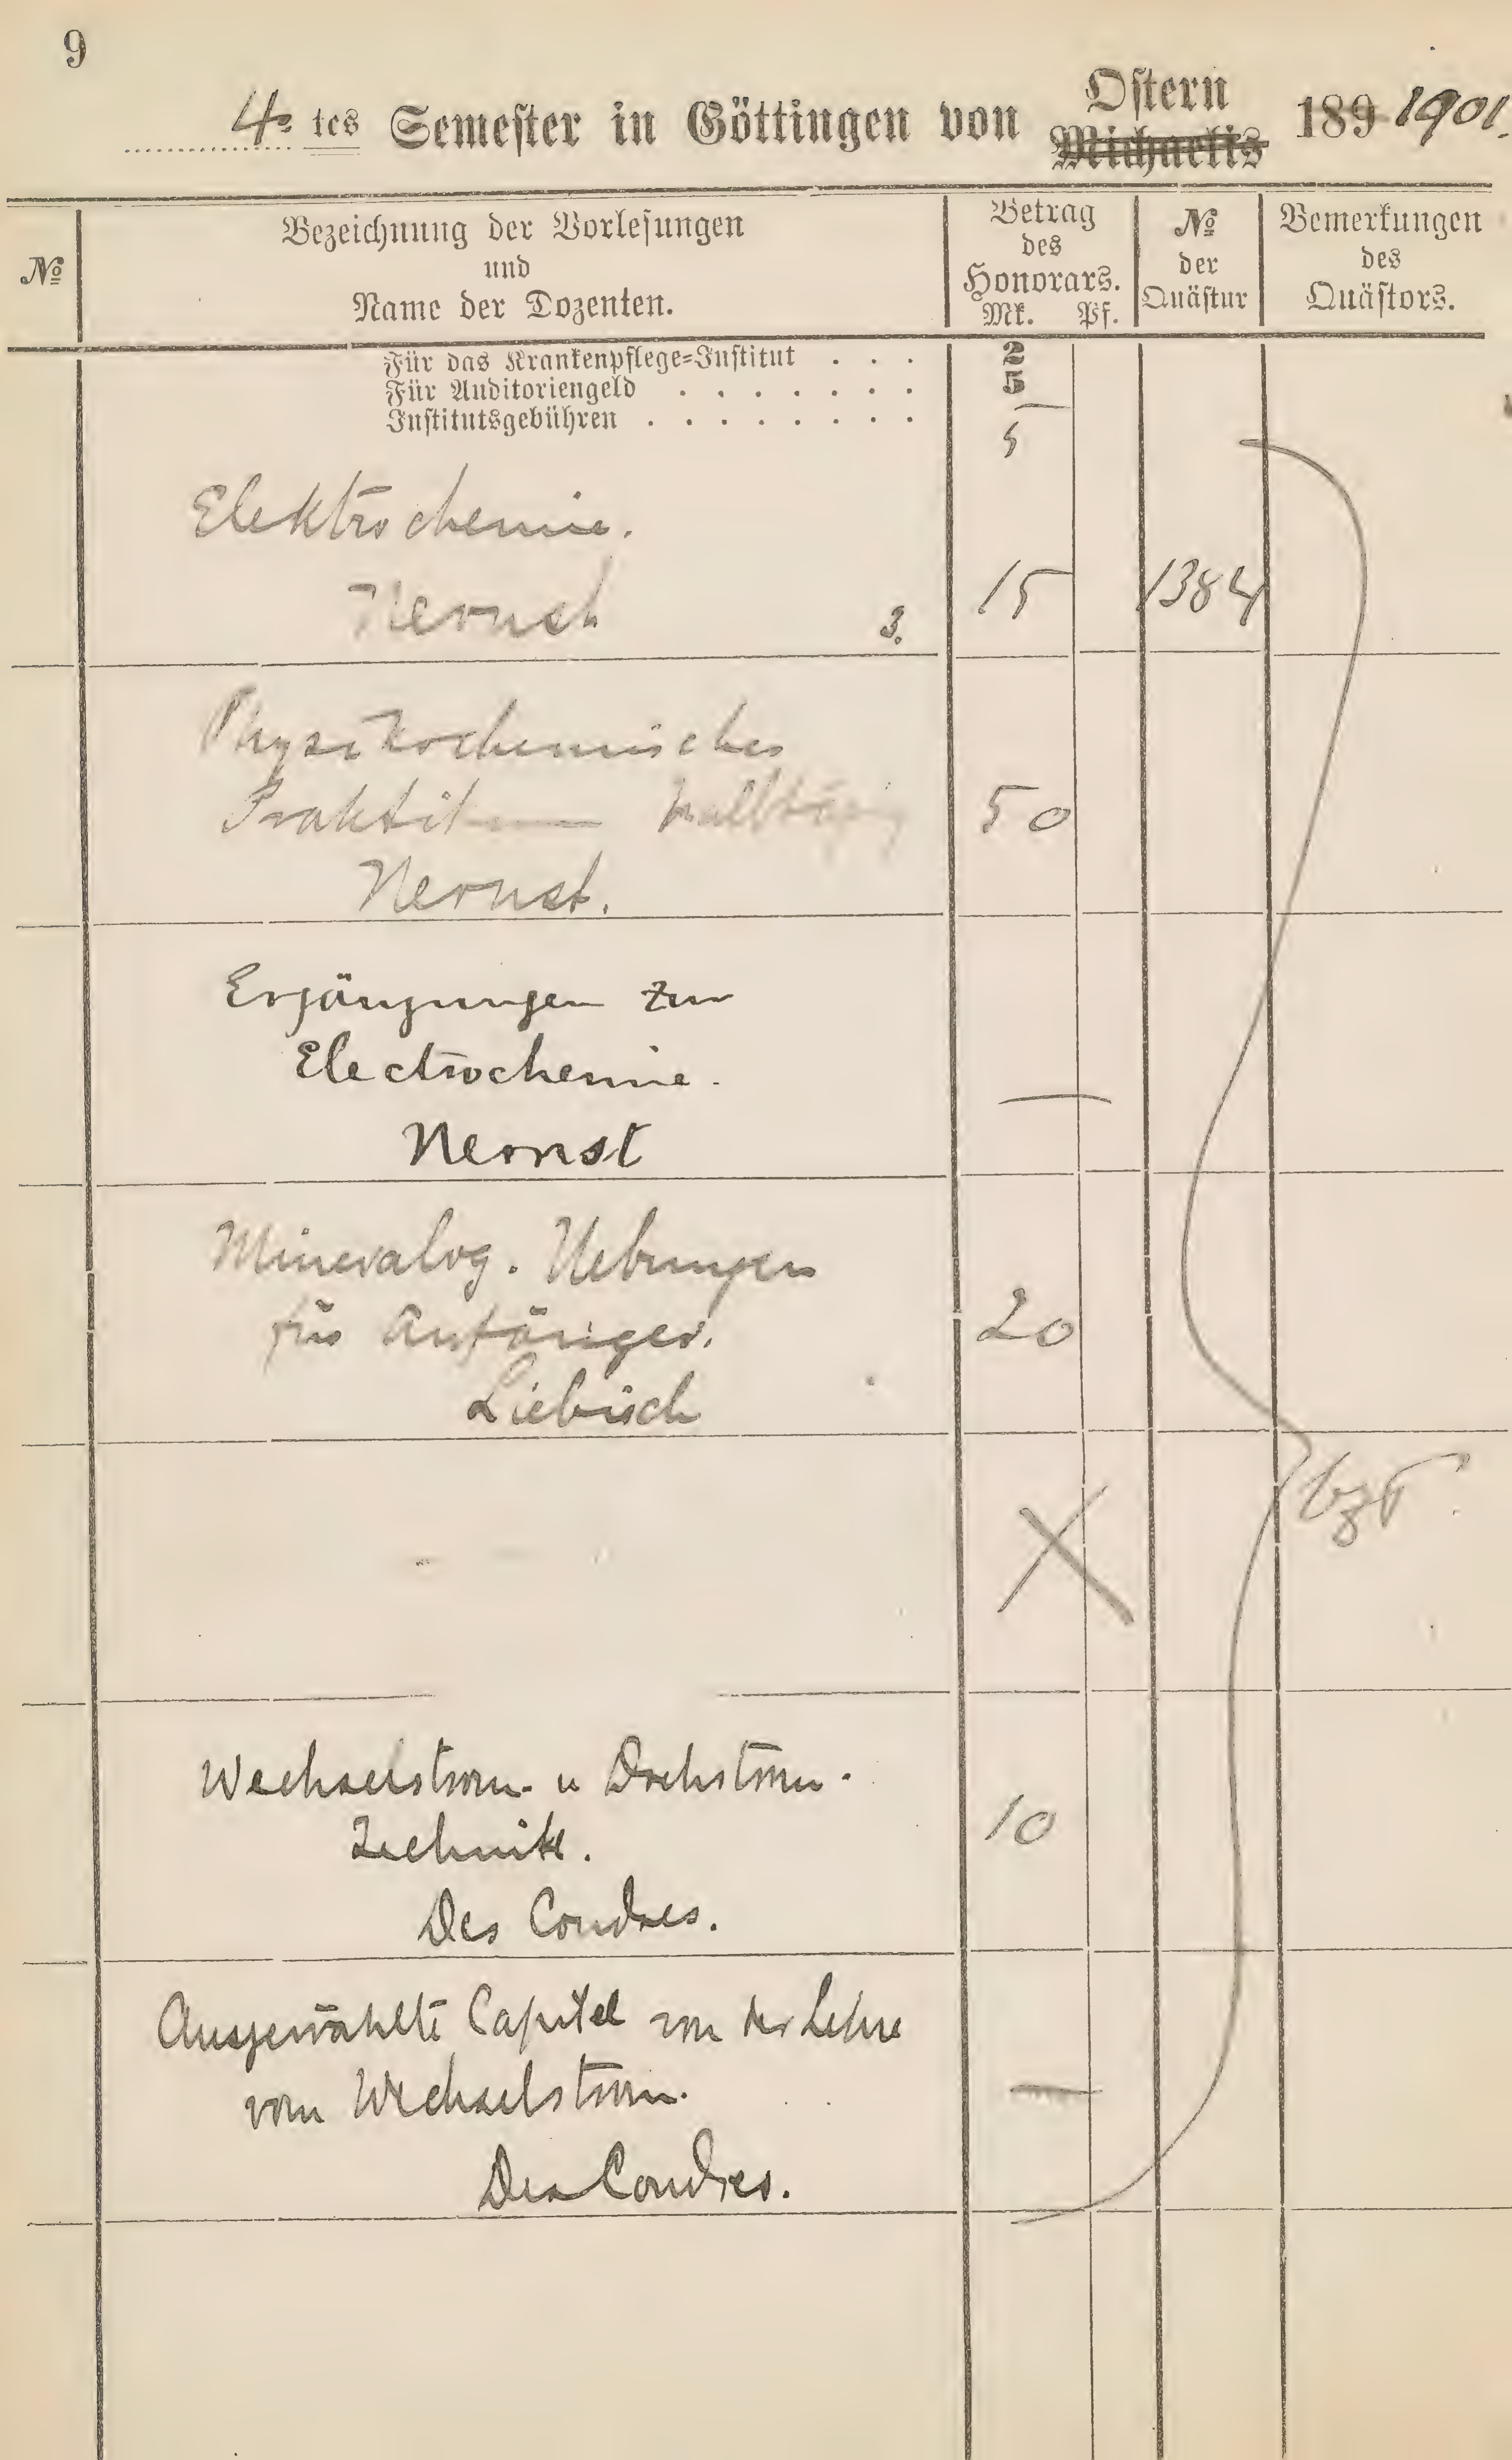 9
4. tes Semester in Göttingen von Ostern Michaelis 189 1901.
№
Bezeichnung der Vorlesungen
und
Name der Dozenten.
Betrag
des
Honorars.
Mk. Pf.
№
der
Quästur
Bemerkungen
des
Quästors.
Für das Krankenpflege-Institut . . . 2
Für Auditoriengeld . . . . . . . 5
Institutsgebühren . . . . . . . . 5
Elektrochemie.
Nernst 3. 15 1384
Physikochemisches
Praktikum halbtägig 50
Nernst.
Ergänzungen zur
Electrochemie. —
Nernst
Mineralog. Uebungen
für Anfänger. 20
Liebisch
bzt
Wechselstrom- u Drehstrom-
Technik. 10
Des Coudres.
Ausgewählte Capitel von der Lehre
vom Wechselstrom. —
Des Coudres.